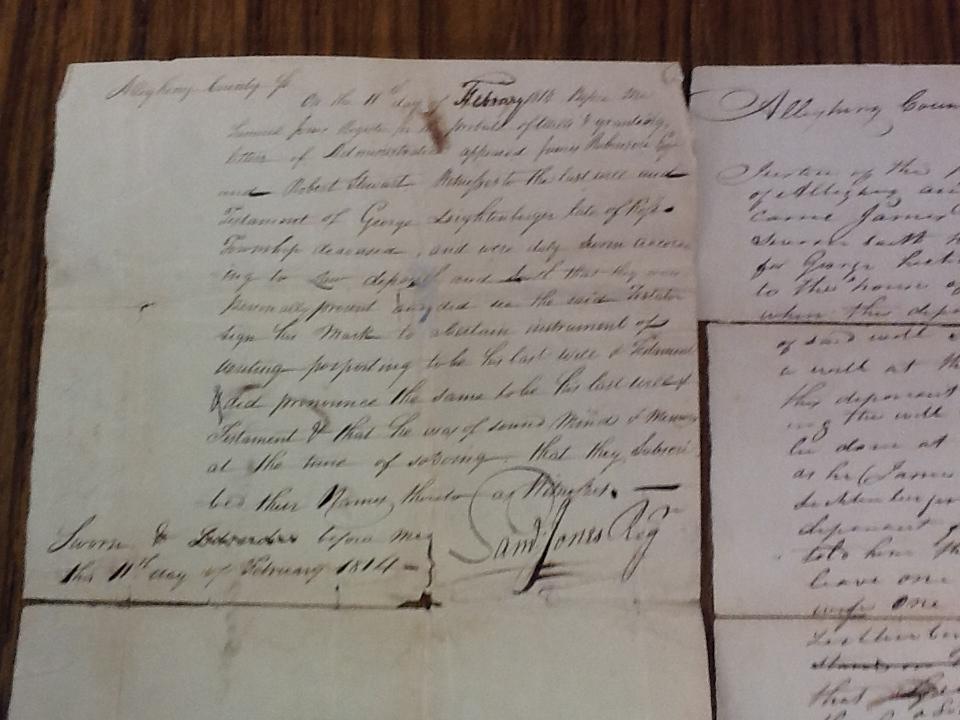 Allegheny County Ss
On the 11th day of February 1814 Before Me
Samuel Jones Register for the probate of Wills & granting
letters of Administration appeared James Robinson Esqr
and Robert Stewart Witnesses to the last will and
Testament of George Leightenberger late of Ross
Township deceased, and were duly sworn accord
ing to Law depose and that they were
personally present and did see the said Testator
sign his Mark to a Certain instrument of
writing porporting to be his last will & Testament
& did pronounce the same to be his last will &
Testament & that he was of sound Mind & Memory
at the time of so doing, that they Subscri
bed their Names thereto as Witnesses.
Sworn & before me
this 11th day of February 1814
Saml Jones Regr
Allegheny Coun
Justice of the P
of Allegheny an
came James
sworn saith
for George
to the house of
when the depo
of said will
a will at th
this deponent
ing the will
be done at
as he (James
deponent
told him th
leave one
wife One
that